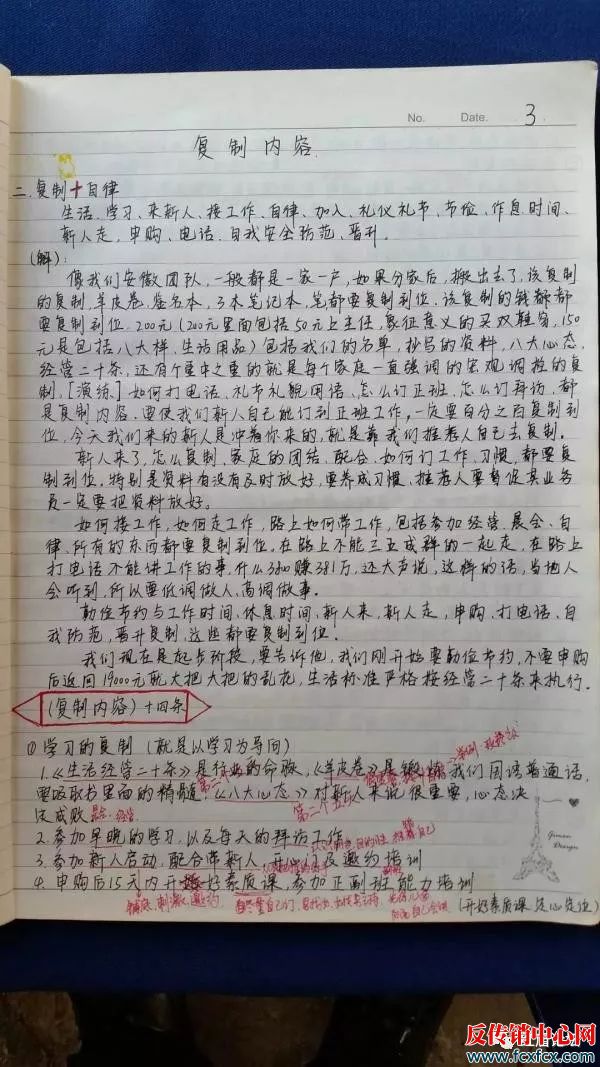 No. Date. 3
复制内容.
二.复制十自律
生活、学习、来新人、接工作、自律、加入、礼仪礼节、节俭、作息时间、
新人走,申购、电话、自我安全防范、晋升.
(解):
像我们安徽团队,一般都是一家一户,如果分家后,搬出去了,该复制
的复制,羊皮卷,签名本,3本笔记本,笔都要复制到位,该复制的钱都都
要复制到位,200元(200元里面包括50元上主任,象征意义的买双鞋穿,150
元是包括八大样,生活用品)包括我们的名单,抄写的资料,八大心态,
经营二十条,还有个重中之重的就是每个家庭一直强调的宏观调控的复
制,[演练]如何打电话、礼节礼貌用语、怎么订正班,怎么订拜访,都
是复制内容.要使我们新人自己能订到正班工作,一定要百分之百复制到
位,今天我们来的新人是冲着你来的,就是靠我们推荐人自己去复制.
新人来了,怎么复制,家庭的团结、配合,如何订工作,习惯,都要复
制到位.特别是资料有没有及时放好,要养成习惯,推荐人要督促其业务
员一定要把资料放好。
如何接工作,如何走工作,路上如何带工作,包括参加经营、晨会、自
律、所有的东西都要复制到位.在路上不能三五成群的一起走,在路上
打电话不能讲工作的事,什么3800赚381万,还大声说,这样的话,当地人
会听到,所以要低调做人,高调做事.
勤俭节约与工作时间、休息时间、新人来,新人走,申购、打电话、自
我防范,晋升复制,这些都要复制到位.
我们现在是起步阶段,要告诉他,我们刚开始要勤俭节约,不要申购
后返回19000元就大把大把的乱花,生活标准严格按经营二十条来执行.
(复制内容)十四条
①学习的复制(就是以学习为导向)
1.《生活经营二十条》是行业的命脉,《羊皮卷》是锻炼我们国语普通话,
要吸取书里面的精髓.《八大心态》对新人来说很重要,心态决
定成败
2.参加早晚的学习,以及每天的拜访工作
3.参加新人启动,配合带新人,开心门及邀约培训
4.申购后15天内开好素质课,参加正副班能力培训
(开好素质课 定心定位)
反传销中心网
www.fcxfcx.com